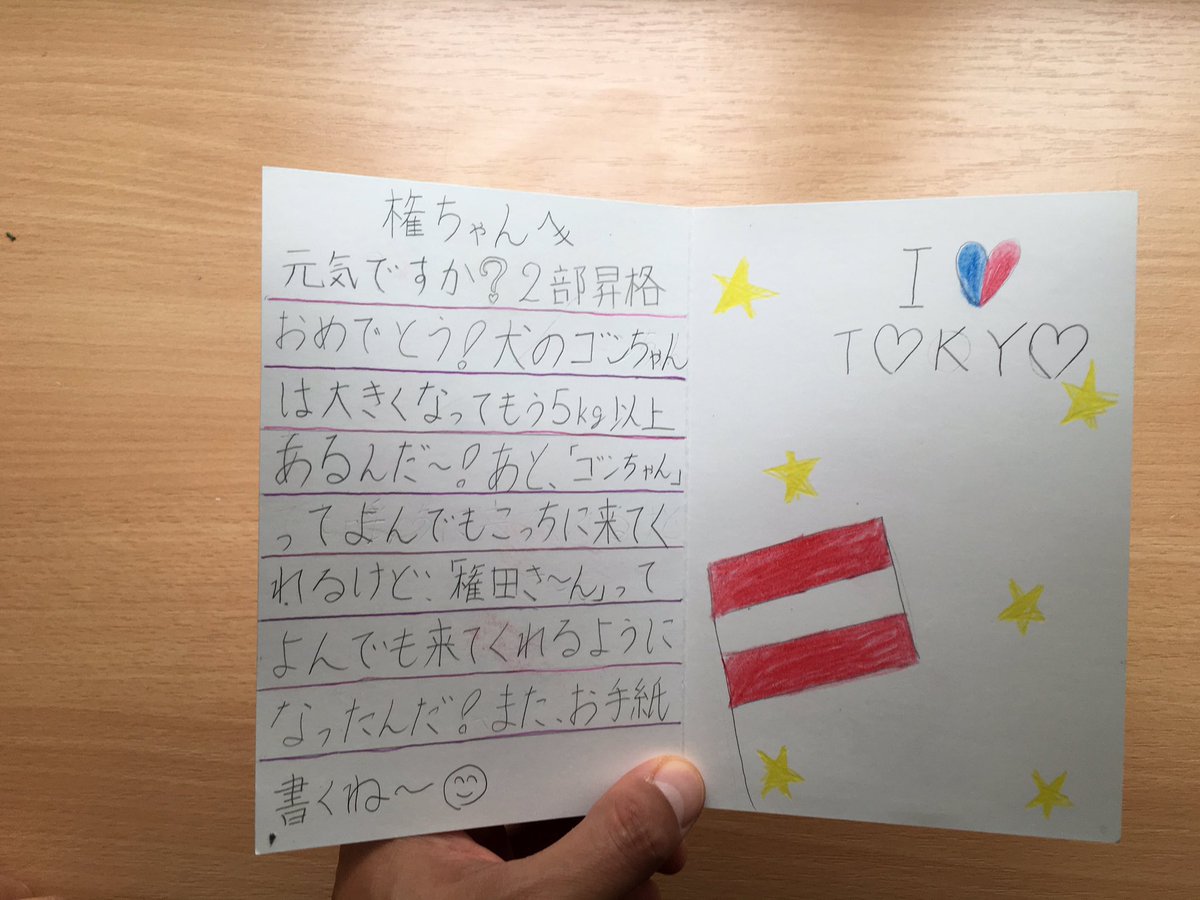 権ちゃんへ
元気ですか?2部昇格
おめでとう!犬のゴンちゃん
は大きくなってもう5kg以上
あるんだ〜!あと、「ゴンちゃん」
ってよんでもこっちに来てく
れるけど、「権田さ〜ん」って
よんでも来てくれるように
なったんだ!また、お手紙
書くね〜
I
T♡KY♡